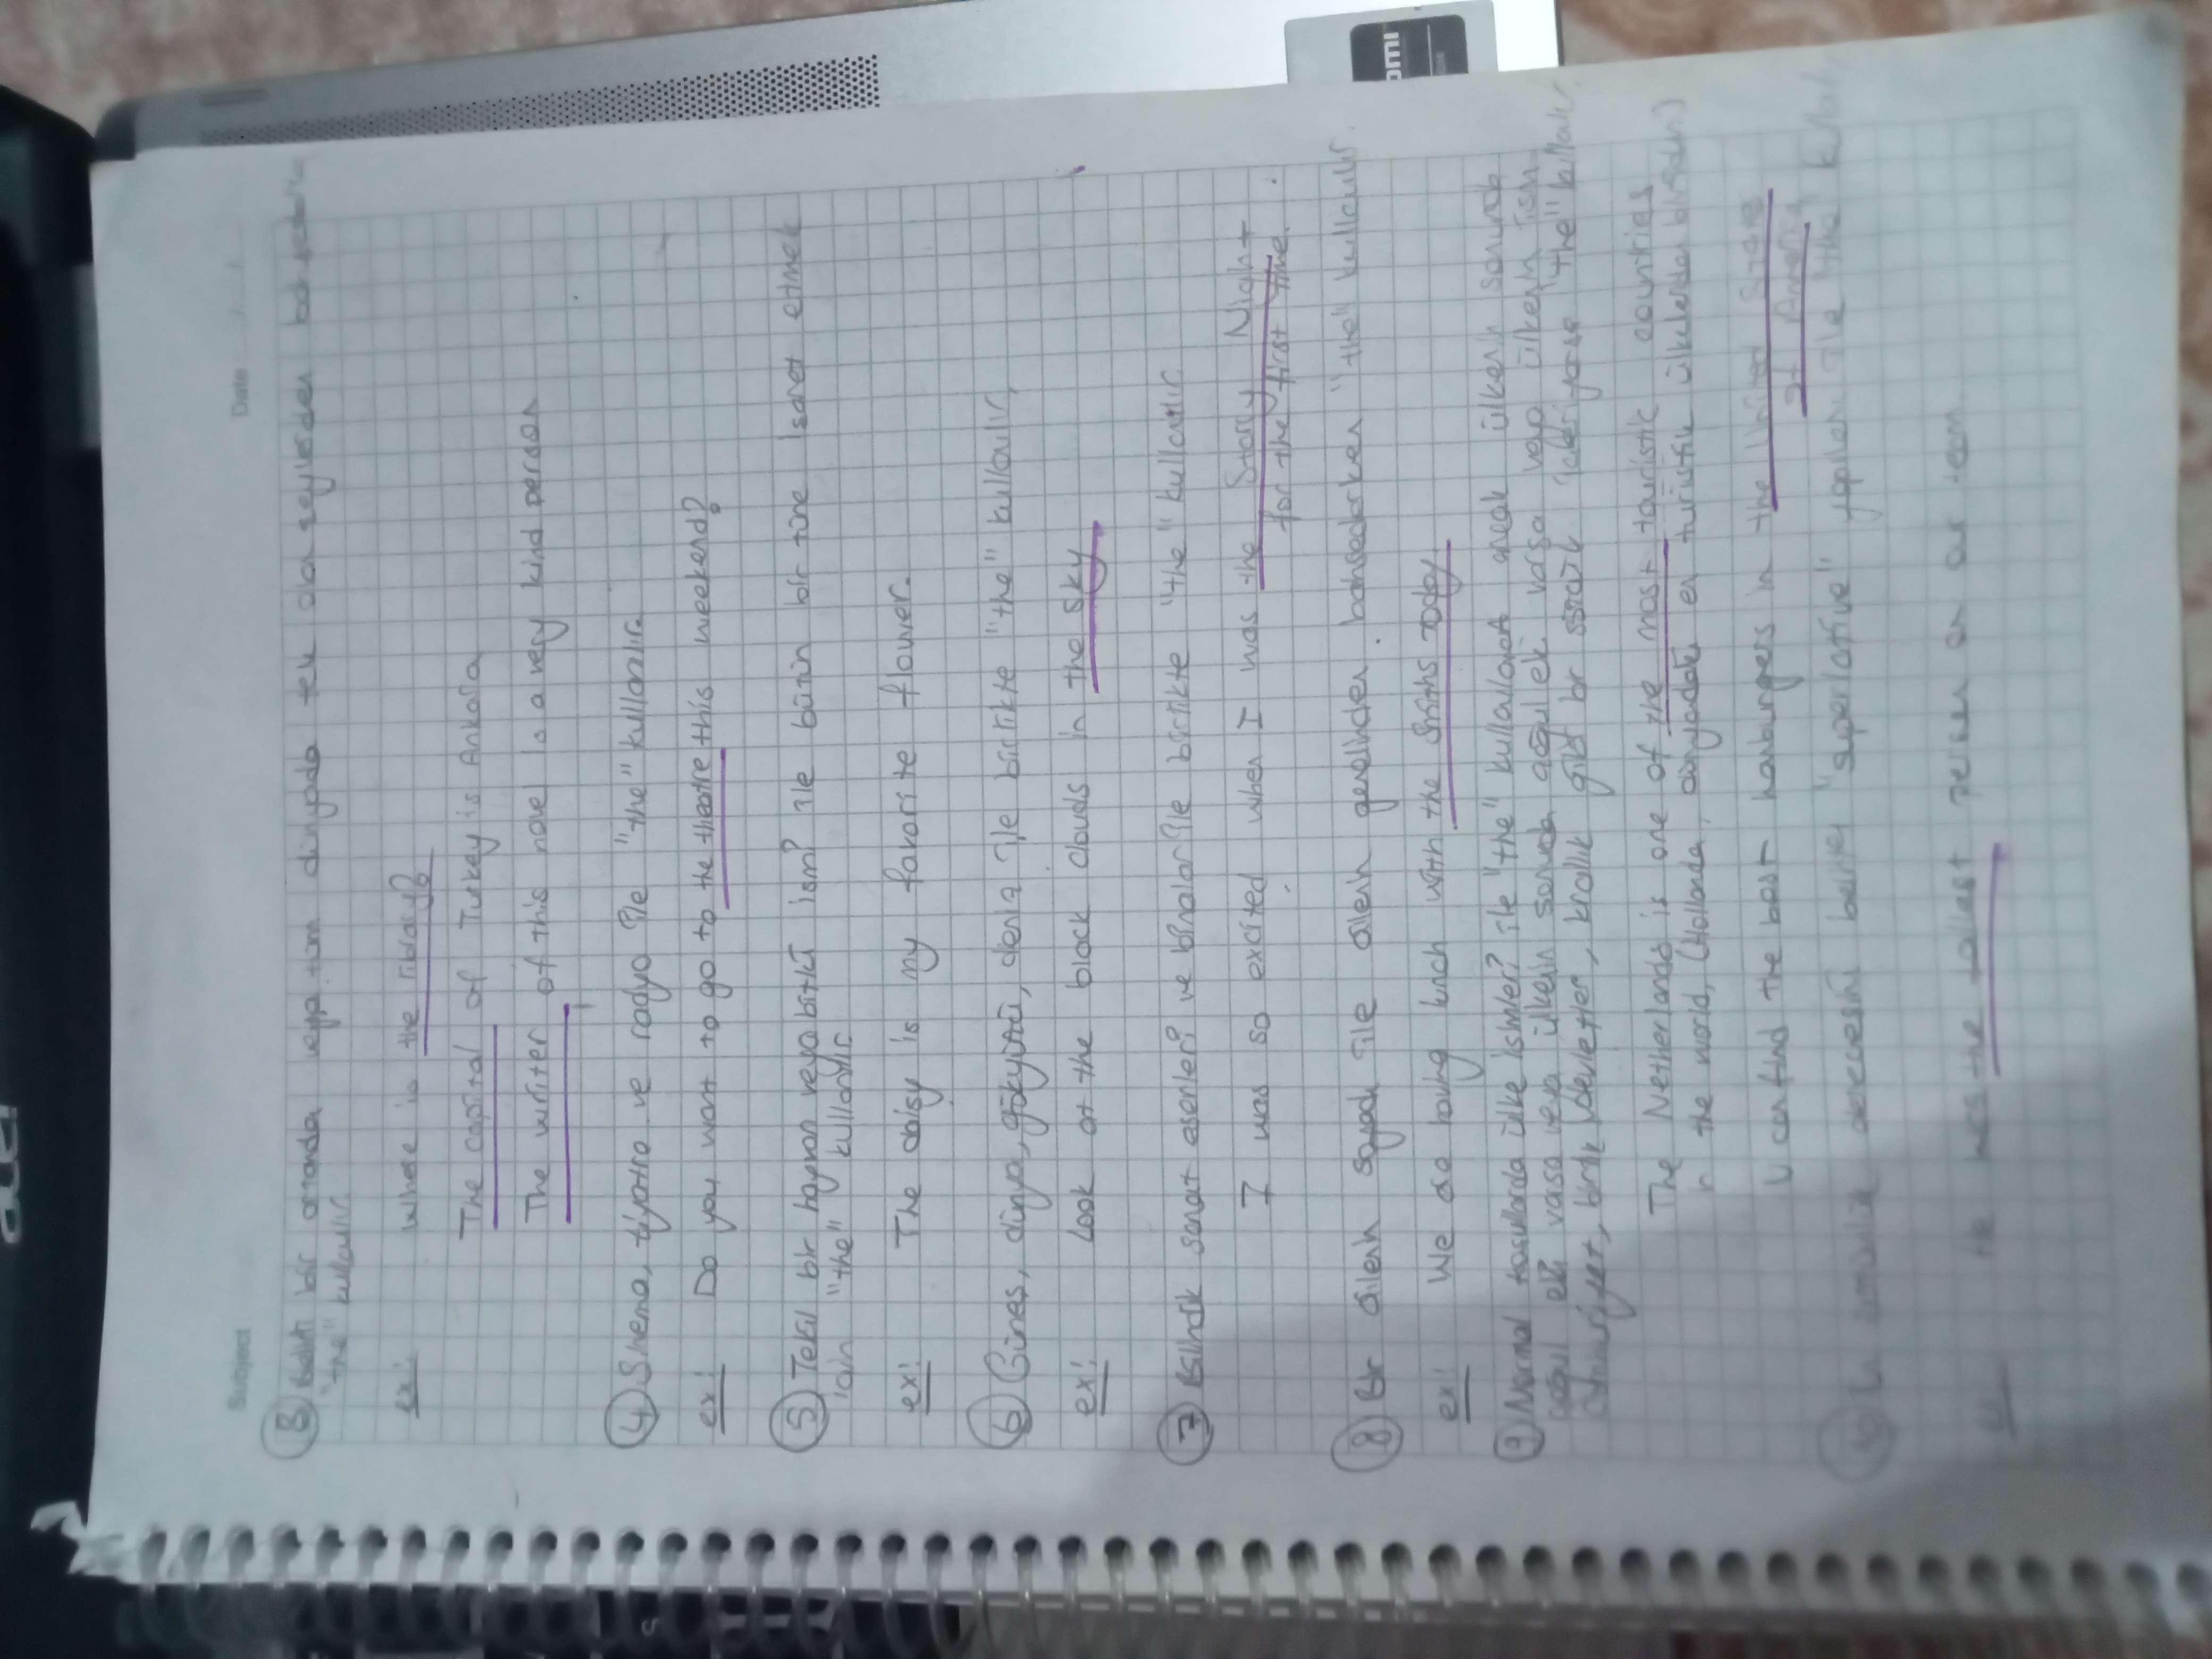 Subject
Date
③ Belirli bir ortamda veya tüm dünyada tek olan şeylerden bahsederken
"the" kullanılır
ex: Where is the library?
The capital of Turkey is Ankara
The writer of this novel is a very kind person
④ Sinema, tiyatro ve radyo ile "the" kullanılır.
ex: Do you want to go to the theatre this weekend?
⑤ Tekil bir hayvan veya bitki ismi ile bütün bir türe işaret etmek
için "the" kullanılır
ex: The daisy is my favorite flower.
⑥ Güneş, dünya, gökyüzü, deniz ile birlikte "the" kullanılır,
ex: Look at the black clouds in the sky
⑦ Bilindik sanat eserleri ve binalar ile birlikte "the" kullanılır.
I was so excited when I was the Starry Night
for the first time.
⑧ Bir ailenin soyadı ile ailenin genelinden bahsederken "the" kullanılır.
ex: We are having lunch with the Smiths today
⑨ Normal koşullarda ülke isimleri ile "the" kullanılmaz ancak ülkenin sonunda
çoğul eki varsa veya ülkenin sonunda çoğul eki varsa veya ülkenin ismi
cumhuriyet, birleşik devletler, krallık gibi bir sözcük içeriyorsa "the" kullanılır.
The Netherlands is one of the most touristic countries
in the world, (Hollanda, dünyadaki en turistik ülkelerden birisidir)
U can find the best hamburgers in the United States
of America
"superlative" yapıları ile "the"
He was the tallest person on our team
acer